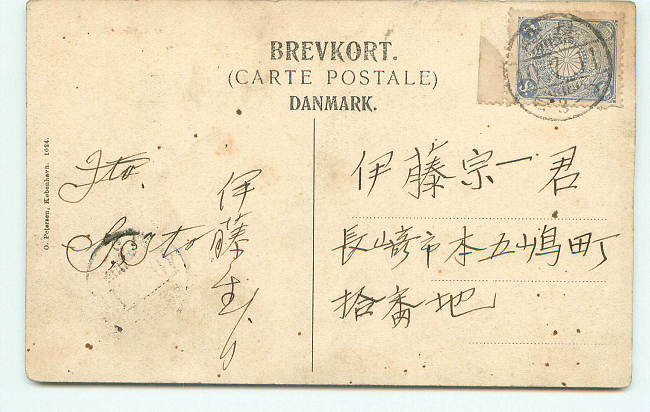 BREVKORT.
(CARTE POSTALE)
DANMARK.
O. Petersen, København. 1024.
Ito.
S. Ito
伊藤
伊藤宗一君
長崎市本五嶋町
拾番地